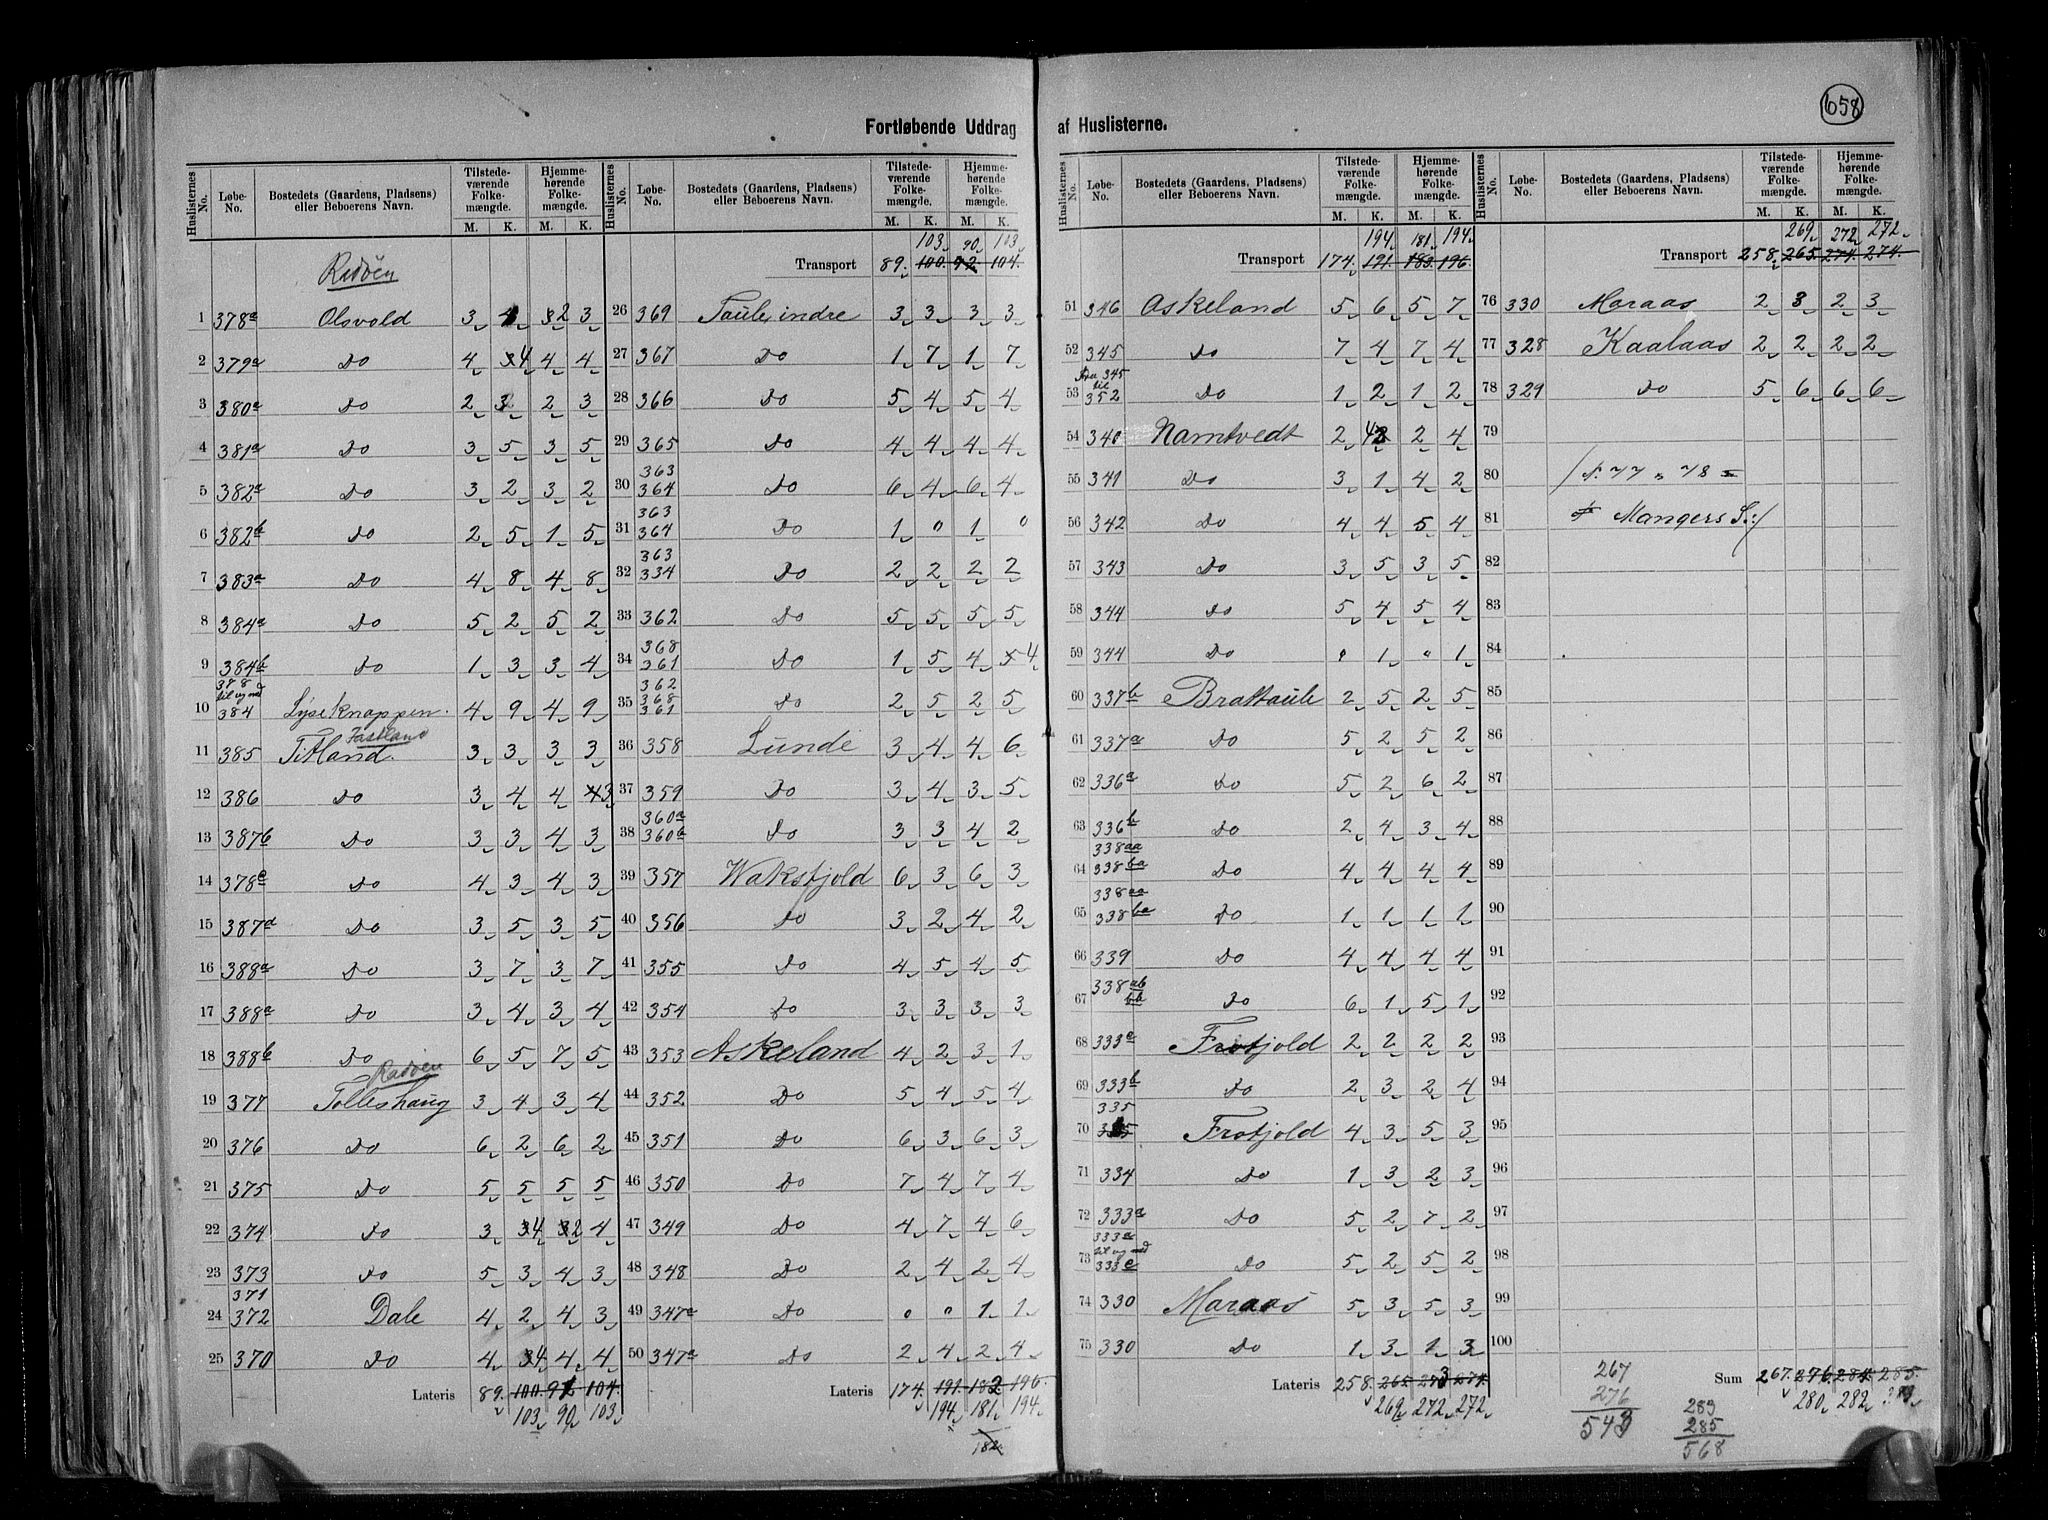 658
Fortløbende Uddrag af Huslisterne.
Huslisternes No. Løbe-No. Bostedets (Gaardens, Pladsens) eller Beboerens Navn. Tilstedeværende Folkemængde. Hjemmehørende Folkemængde.
M. K. M. K.
Radöen
1 378a Olsvold 3 4 2 3
2 379a Do 4 4 4 4
3 380a Do 2 3 2 3
4 381a Do 3 5 3 5
5 382a Do 3 2 3 2
6 382b Do 2 5 1 5
7 383a Do 4 8 4 8
8 384a Do 5 2 5 2
9 384b Do 1 3 3 4
378a til og med
10 384 Lyseknappen 4 9 4 9
Fastland
11 385 Titland 3 3 3 3
12 386 Do 3 4 4 3
13 387b Do 3 3 4 3
14 378e Do 4 3 4 3
15 387d Do 3 5 3 5
16 388a Do 3 7 3 7
17 388a Do 3 4 3 4
18 388b Do 6 5 7 5
Radöen
19 377 Tolleshaug 3 4 3 4
20 376 Do 6 2 6 2
21 375 Do 5 5 5 5
22 374 Do 3 4 2 4
23 373 Do 5 3 4 3
371
24 372 Dale 4 2 4 3
25 370 Do 4 4 4 4
Lateris 89 100 92 104
103 90 103
Huslisternes No. Løbe-No. Bostedets (Gaardens, Pladsens) eller Beboerens Navn. Tilstedeværende Folkemængde. Hjemmehørende Folkemængde.
M. K. M. K.
103 90 103
Transport 89 100 92 104
26 369 Taule indre 3 3 3 3
27 367 Do 1 7 1 7
28 366 Do 5 4 5 4
29 365 Do 4 4 4 4
363
30 364 Do 6 4 6 4
363
31 364 Do 1 0 1 0
363
32 334 Do 2 2 2 2
33 362 Do 5 5 5 5
368
34 361 Do 1 5 4 5 4
362
368
35 361 Do 2 5 2 5
36 358 Lunde 3 4 4 6
37 359 Do 3 4 3 5
360a
38 360b Do 3 3 4 2
39 357 Waksfjold 6 3 6 3
40 356 Do 3 2 4 2
41 355 Do 4 5 4 5
42 354 Do 3 3 3 3
43 353 Askeland 4 2 3 1
44 352 Do 5 4 5 4
45 351 Do 6 3 6 3
46 350 Do 7 4 7 4
47 349 Do 4 7 4 6
48 348 Do 2 4 2 4
49 347a Do 0 0 1 1
50 347a Do 2 4 2 4
Lateris 174 191 182 196
194 181 194
182
Huslisternes No. Løbe-No. Bostedets (Gaardens, Pladsens) eller Beboerens Navn. Tilstedeværende Folkemængde. Hjemmehørende Folkemængde.
M. K. M. K.
194 181 194
Transport 174 191 183 196
51 346 Askeland 5 6 5 7
52 345 Do 7 4 7 4
fra 345 til
53 352 Do 1 2 1 2
54 340 Namtvedt 2 4 2 4
55 341 Do 3 1 4 2
56 342 Do 4 4 5 4
57 343 Do 3 5 3 5
58 344 Do 5 4 5 4
59 344 Do 0 1 0 1
60 337b Brattaule 2 5 2 5
61 337a Do 5 2 5 2
62 336a Do 5 2 6 2
63 336b Do 2 4 3 4
338aa
64 338ba Do 4 4 4 4
338aa
65 338ba Do 1 1 1 1
66 339 Do 4 4 4 4
338ab
67 bb Do 6 1 5 1
68 333a Frotjold 2 2 2 2
69 333b Do 2 3 2 4
335
70 335 Frotjold 4 3 5 3
71 334 Do 1 3 2 3
72 333a Do 5 2 7 2
333a til og med
73 333e Do 5 2 5 2
74 330 Maraas 5 3 5 3
75 330 Do 1 3 1 3
Lateris 258 265 273 274
269 272 272
Huslisternes No. Løbe-No. Bostedets (Gaardens, Pladsens) eller Beboerens Navn. Tilstedeværende Folkemængde. Hjemmehørende Folkemængde.
M. K. M. K.
269 272 272
Transport 258 265 274 274
76 330 Maraas 2 3 2 3
77 328 Kaalaas 2 2 2 2
78 329 Do 5 6 6 6
79
80 77 " 78 =
81 Mangers S.:/
82
83
84
85
86
87
88
89
90
91
92
93
94
95
96
97
98
99
100
Sum 267 276 284 285
280 282 283
267
276
543
283
285
568